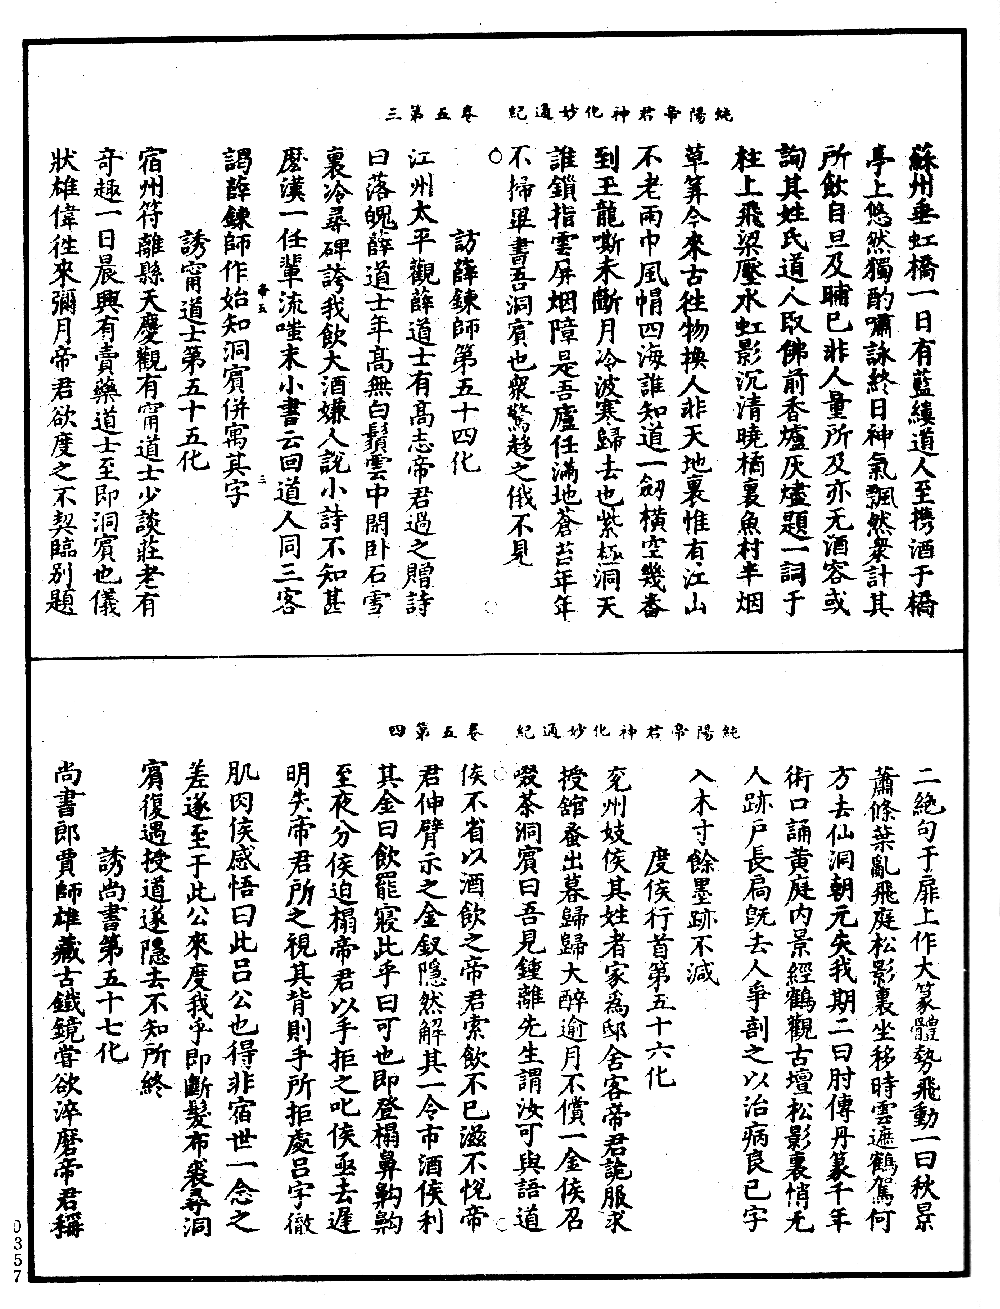 純陽帝君神化妙通紀　卷五第三
蘇州垂虹橋一日有藍縷道人至攜酒于橋
亭上悠然獨酌嘯詠終日神氣飄然衆計其
所飲自旦及晡已非人量所及亦无酒容或
詢其姓氏道人取佛前香爐灰燼題一詞于
柱上飛梁壓水虹影沉清曉橋裏魚村半烟
草笇今來古徃物換人非天地裏惟有江山
不老兩巾風帽四海誰知道一劒橫空幾番
到王龍嘶未斷月冷波寒歸去也紫極洞天
誰鎖指雲屏烟障是吾廬任滿地蒼苔年年
不掃畢書吾洞賓也衆驚趍之俄不見
訪薛鍊師第五十四化
江州太平觀薛道士有高志帝君過之贈詩
曰落魄薛道士年高無白鬚雲中閑卧石雪
裏冷尋碑誇我飲大酒嫌人說小詩不知甚
麼漢一任輩流嗤末小書云回道人同三客
謁薛鍊師作始知洞賓併寓其字
帝五　三
誘甯道士第五十五化
宿州符離縣天慶觀有甯道士少談莊老有
奇趣一日晨興有賣藥道士至即洞賓也儀
狀雄偉徃來彌月帝君欲度之不契臨别題
純陽帝君神化妙通紀　卷五第四
二絶句于扉上作大篆體勢飛動一曰秋景
蕭條葉亂飛庭松影裏坐移時雲遮鶴駕何
方去仙洞朝元失我期二曰肘傳丹篆千年
術口誦黄庭内景經鶴觀古壇松影裏悄无
人跡戶長扃旣去人爭剖之以治病良已字
入木寸餘墨跡不減
度侯行首第五十六化
兖州妓侯其姓者家爲邸舍客帝君詭服求
授舘蚤出暮歸歸大醉逾月不償一金侯召
啜茶洞賓曰吾見鍾離先生謂汝可與語道
侯不省以酒飲之帝君索飲不已滋不悅帝
君伸臂示之金釵隱然解其一令市酒侯利
其金曰飲罷寢此乎曰可也即登榻鼻齁齁
至夜分侯迫榻帝君以手拒之叱侯亟去遲
明失帝君所之視其背則手所拒處呂字徹
肌肉侯感悟曰此呂公也得非宿世一念之
差遂至于此公來度我乎即斷髮布裘尋洞
賓復遇授道遂隱去不知所終
誘尚書第五十七化
尚書郎賈師雄藏古鐵鏡嘗欲淬磨帝君稱
0357